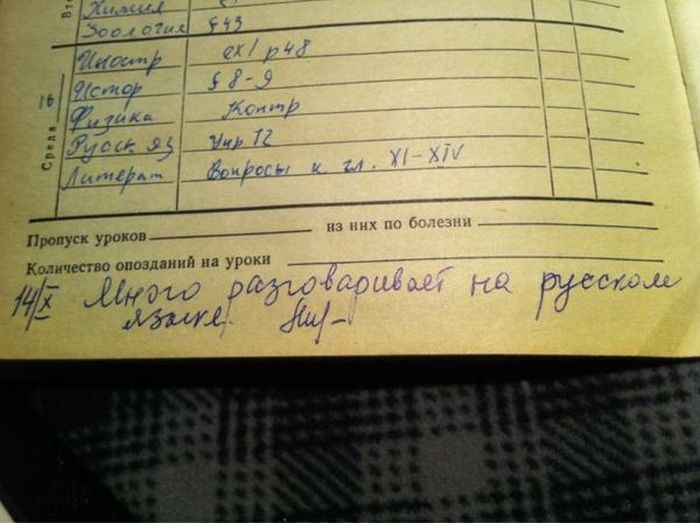 Химия
Зоология §43
Среда 16
Иностр ex1 p48
Истор §8-9
Физика Контр
Русск яз Упр 72
Литерат Вопросы к гл. XI-XIV
Пропуск уроков из них по болезни
Количество опозданий на уроки
14/X Много разговаривает на русском
языке.